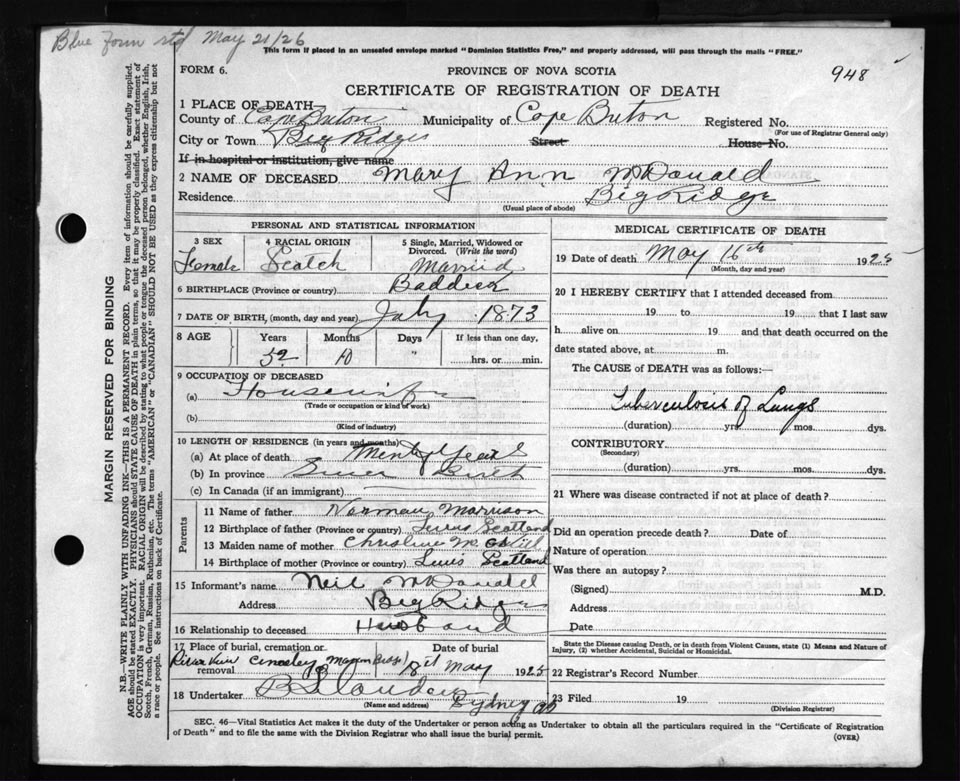 Blue Form std May 21/26
This form if placed in an unsealed envelope marked "Dominion Statistics Free," and properly addressed, will pass through the mails "FREE."
FORM 6.
PROVINCE OF NOVA SCOTIA
948
CERTIFICATE OF REGISTRATION OF DEATH
1 PLACE OF DEATH
County of Cape Breton Municipality of Cape Breton Registered No.
(For use of Registrar General only)
City or Town Big Ridge Street House No.
If in hospital or institution, give name
2 NAME OF DECEASED Mary Ann McDonald
Residence Big Ridge
(Usual place of abode)
MARGIN RESERVED FOR BINDING
N.B.—WRITE PLAINLY WITH UNFADING INK—THIS IS A PERMANENT RECORD. Every item of information should be carefully supplied.
AGE should be stated EXACTLY. PHYSICIANS should STATE CAUSE OF DEATH in plain terms, so that it may be properly classified. Exact statement of
OCCUPATION is very important. RACIAL ORIGIN will be described by stating to what people or tongue the deceased person belonged, whether English, Irish,
Scotch, French, German, Russian, Ruthenian, etc. The terms "AMERICAN" or "CANADIAN" SHOULD NOT BE USED as they express citizenship but not
a race or people. See instructions on back of Certificate.
PERSONAL AND STATISTICAL INFORMATION
3 SEX
Female
4 RACIAL ORIGIN
Scotch
5 Single, Married, Widowed or
Divorced. (Write the word)
Married
6 BIRTHPLACE (Province or country) Baddeck
7 DATE OF BIRTH, (month, day and year) July 1873
8 AGE Years Months Days If less than one day,
52 10 " hrs. or min.
9 OCCUPATION OF DECEASED
(a) Housewife
(Trade or occupation or kind of work)
(b)
(Kind of industry)
10 LENGTH OF RESIDENCE (in years and months)
(a) At place of death Years
(b) In province Since Birth
(c) In Canada (if an immigrant)
Parents
11 Name of father Norman Morrison
12 Birthplace of father (Province or country) Lewis Scotland
13 Maiden name of mother Christina
14 Birthplace of mother (Province or country) Lewis Scotland
15 Informant's name Neil McDonald
Address Big Ridge
16 Relationship to deceased Husband
17 Place of burial, cremation or removal Date of burial
18th May 1925
18 Undertaker
(Name and address) Sydney
MEDICAL CERTIFICATE OF DEATH
19 Date of death May 16th 1925
(Month, day and year)
20 I HEREBY CERTIFY that I attended deceased from
19 to 19 that I last saw
h alive on 19 and that death occurred on
date stated above, at m.
The CAUSE of DEATH was as follows:—
Tuberculosis of Lungs
(duration) yrs. mos. dys.
CONTRIBUTORY
(Secondary)
(duration) yrs. mos. dys.
21 Where was disease contracted if not at place of death?
Did an operation precede death? Date of
Nature of operation
Was there an autopsy?
(Signed) M.D.
Address
Date
State the Disease causing Death, or in death from Violent Causes, state (1) Means and Nature of
Injury, (2) whether Accidental, Suicidal or Homicidal.
22 Registrar's Record Number
23 Filed 19
(Division Registrar)
SEC. 46—Vital Statistics Act makes it the duty of the Undertaker or person acting as Undertaker to obtain all the particulars required in the "Certificate of Registration
of Death" and to file the same with the Division Registrar who shall issue the burial permit.
(OVER)